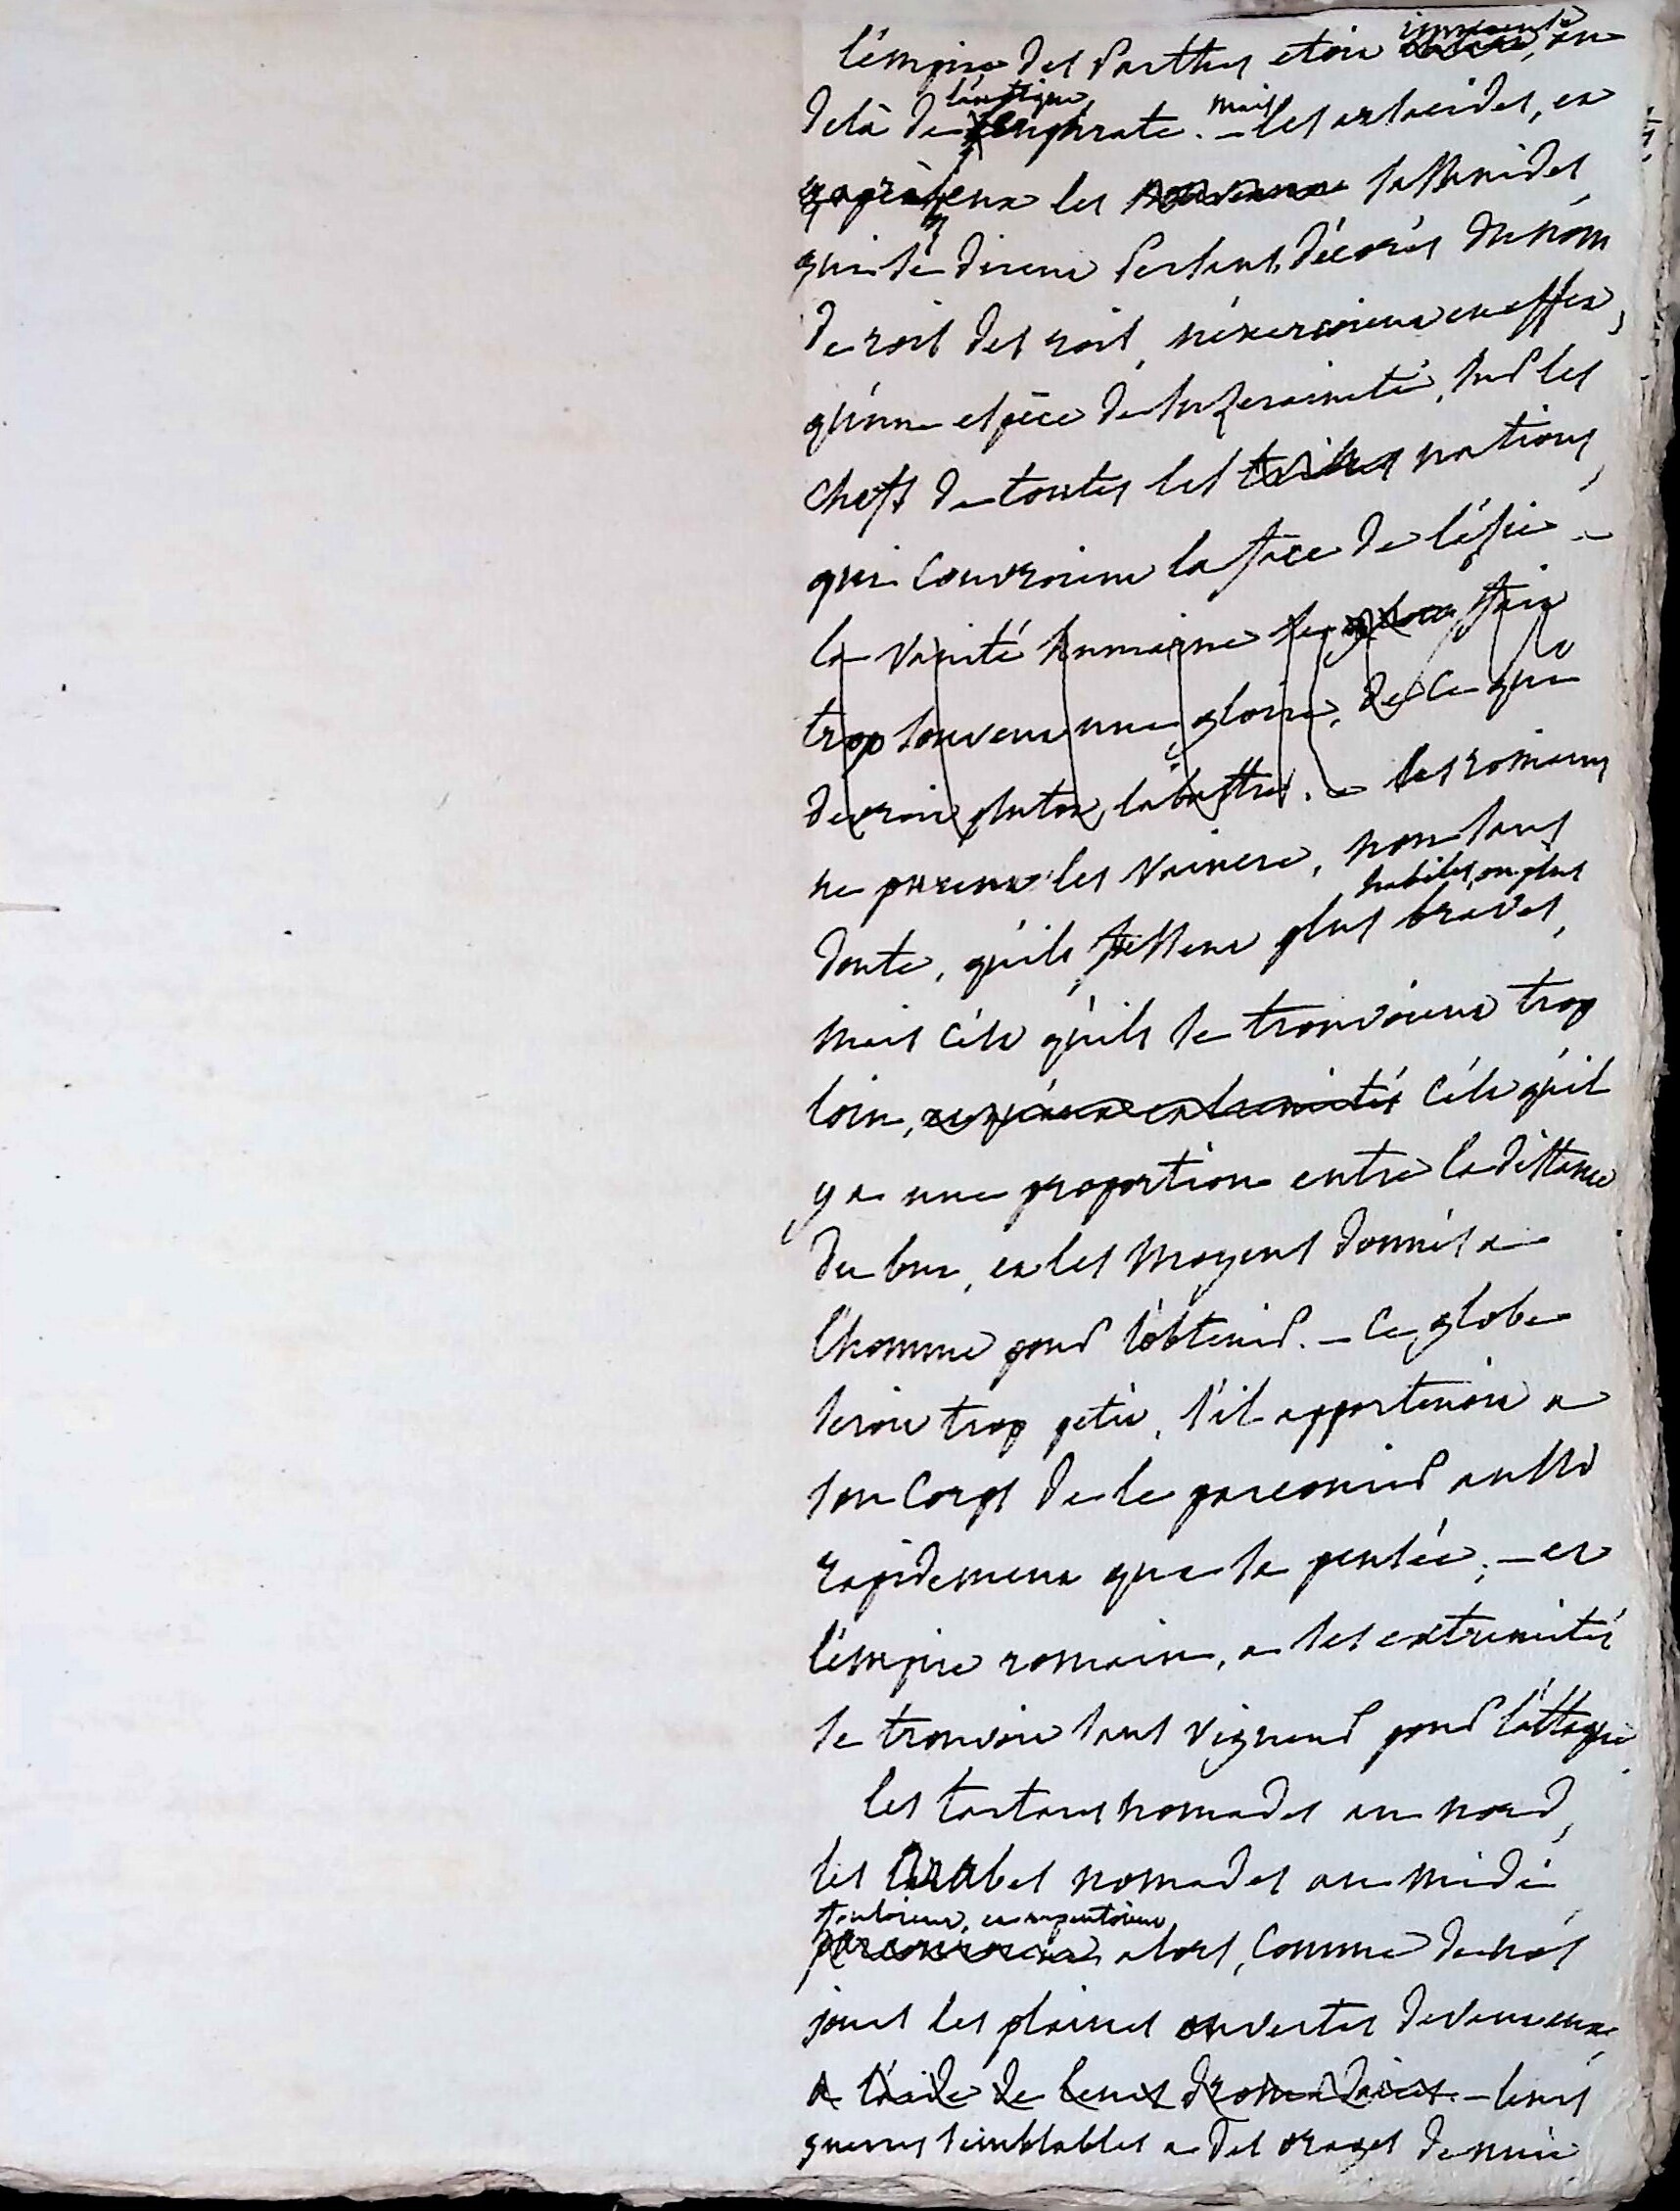 l'empire des Parthes etoit immense, au
delà de l'antique Euphrate. – mais les arsacides, et
après eux les sassanides
qui se dirent Persans, décorés du nom
de rois des rois, n'exercoient en effet,
qu'une espèce de suzeraineté, sur les
chefs de toutes les tribus nations,
qui couvroient la face de l'asie –
la vanité humaine se fait
trop souvent une gloire, de ce qui
devroit plutot, l'abattre. – les romains
ne purent les vaincre, non sans
doute, qu'ils fussent plus habiles, ou plus braves,
mais c'est qu'ils se trouvoient trop
loin, c'est qu'il
y a une proportion entre la distance
du but, et les moyens donnés a
l'homme pour l'obtenir. – ce globe
seroit trop petit, s'il appartenoit a
son corps de le parcourir aussi
rapidement que sa pensée; – et
l'empire romain, a ses extremités
se trouvoit sans vigueur pour l'attaque.
les tartares nomades au nord,
les Arabes nomades au midi
fouloient, et alors, comme de nos
jours les plaines ouvertes devant eux,
a l'aide de leurs dromadaires. – leurs
guerres semblables a des orages de nuit